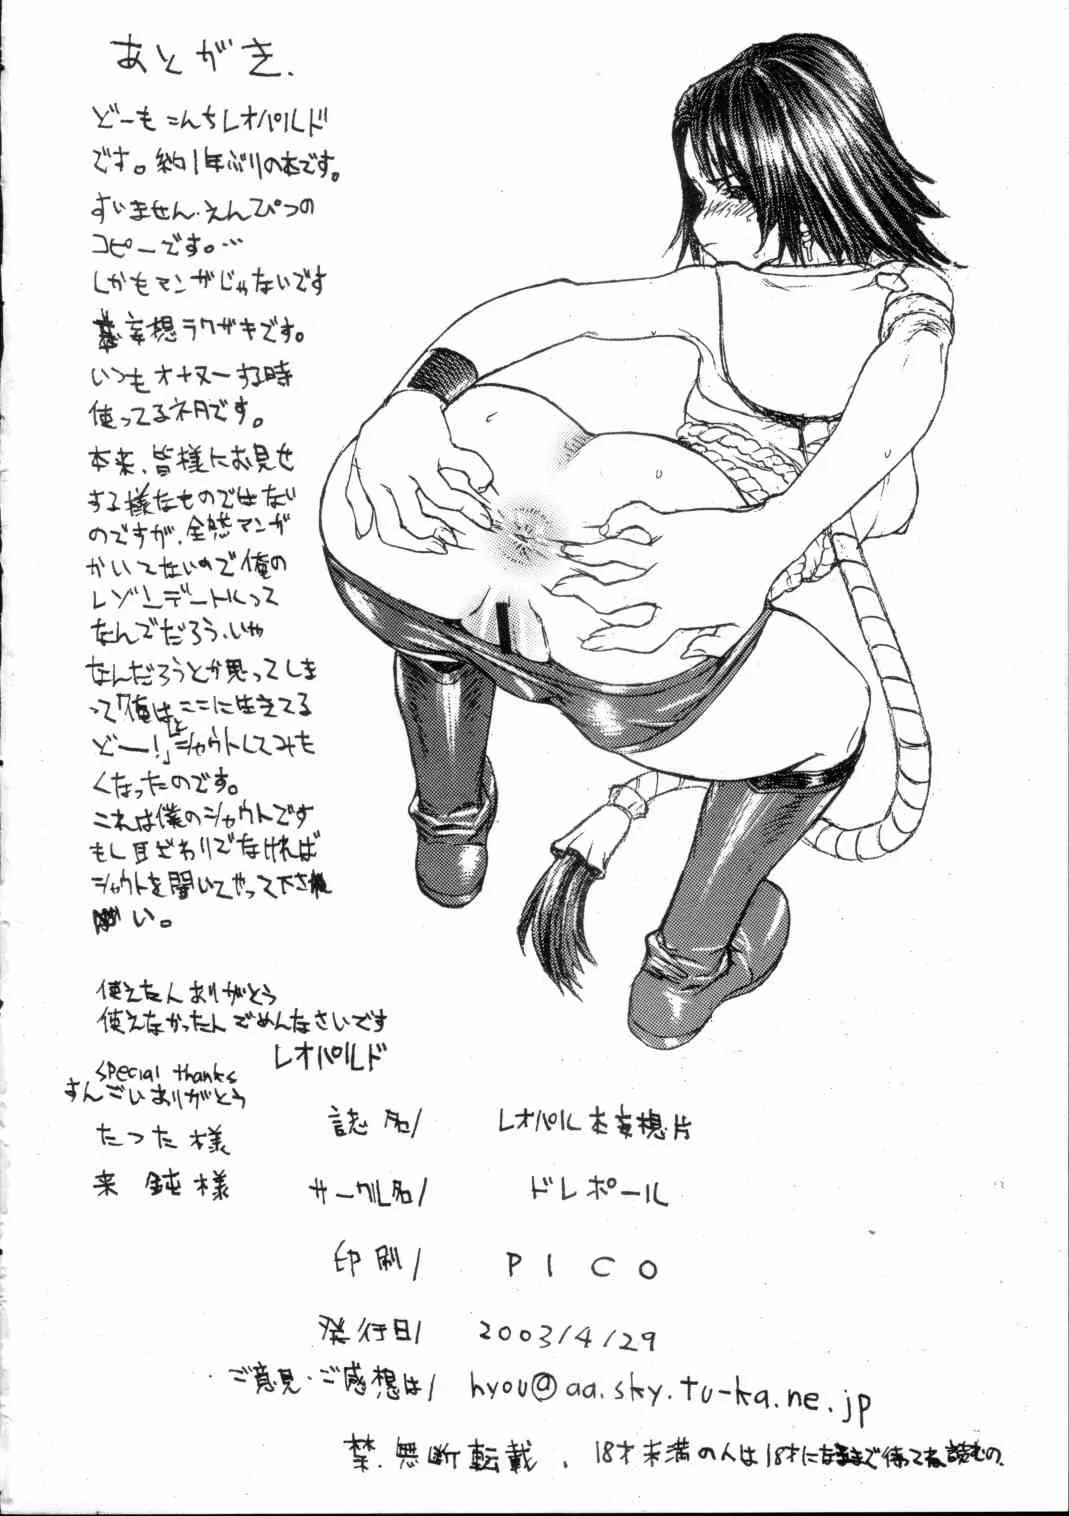 あとがき.
どーも こんちレオパルド
です。約1年ぶりの本です。
すいません・えんぴつの
コピーです。…
しかもマンガじゃないです
妄想ラクガキです。
いつもオナヌーする時
使ってるネタです。
本来、皆様にお見せ
する様なものではない
のですが、全然マンガ
かいてないので俺の
レゾンデートルって
なんでだろう、いや
なんだろうとか思ってしま
って「俺はここに生きてる
どー!」とシャウトしてみも
くなったのです。
これは僕のシャウトです
もし耳ざわりでなければ
シャウトを聞いてやって下され
い。
使えたんありがとう
使えなかったんでめんなさいです
レオパルド
special thanks
すんごいありがとう
たつた様
来鈍様
誌名/ レオパル本妄想片
サークル名/ ドレポール
印刷/ PICO
発行日/ 2003/4/29
ご意見・ご感想は/ hyou@aa.sky.tu-ka.ne.jp
禁.無断転載、18才未満の人は18才になるまで待ってね読むの.